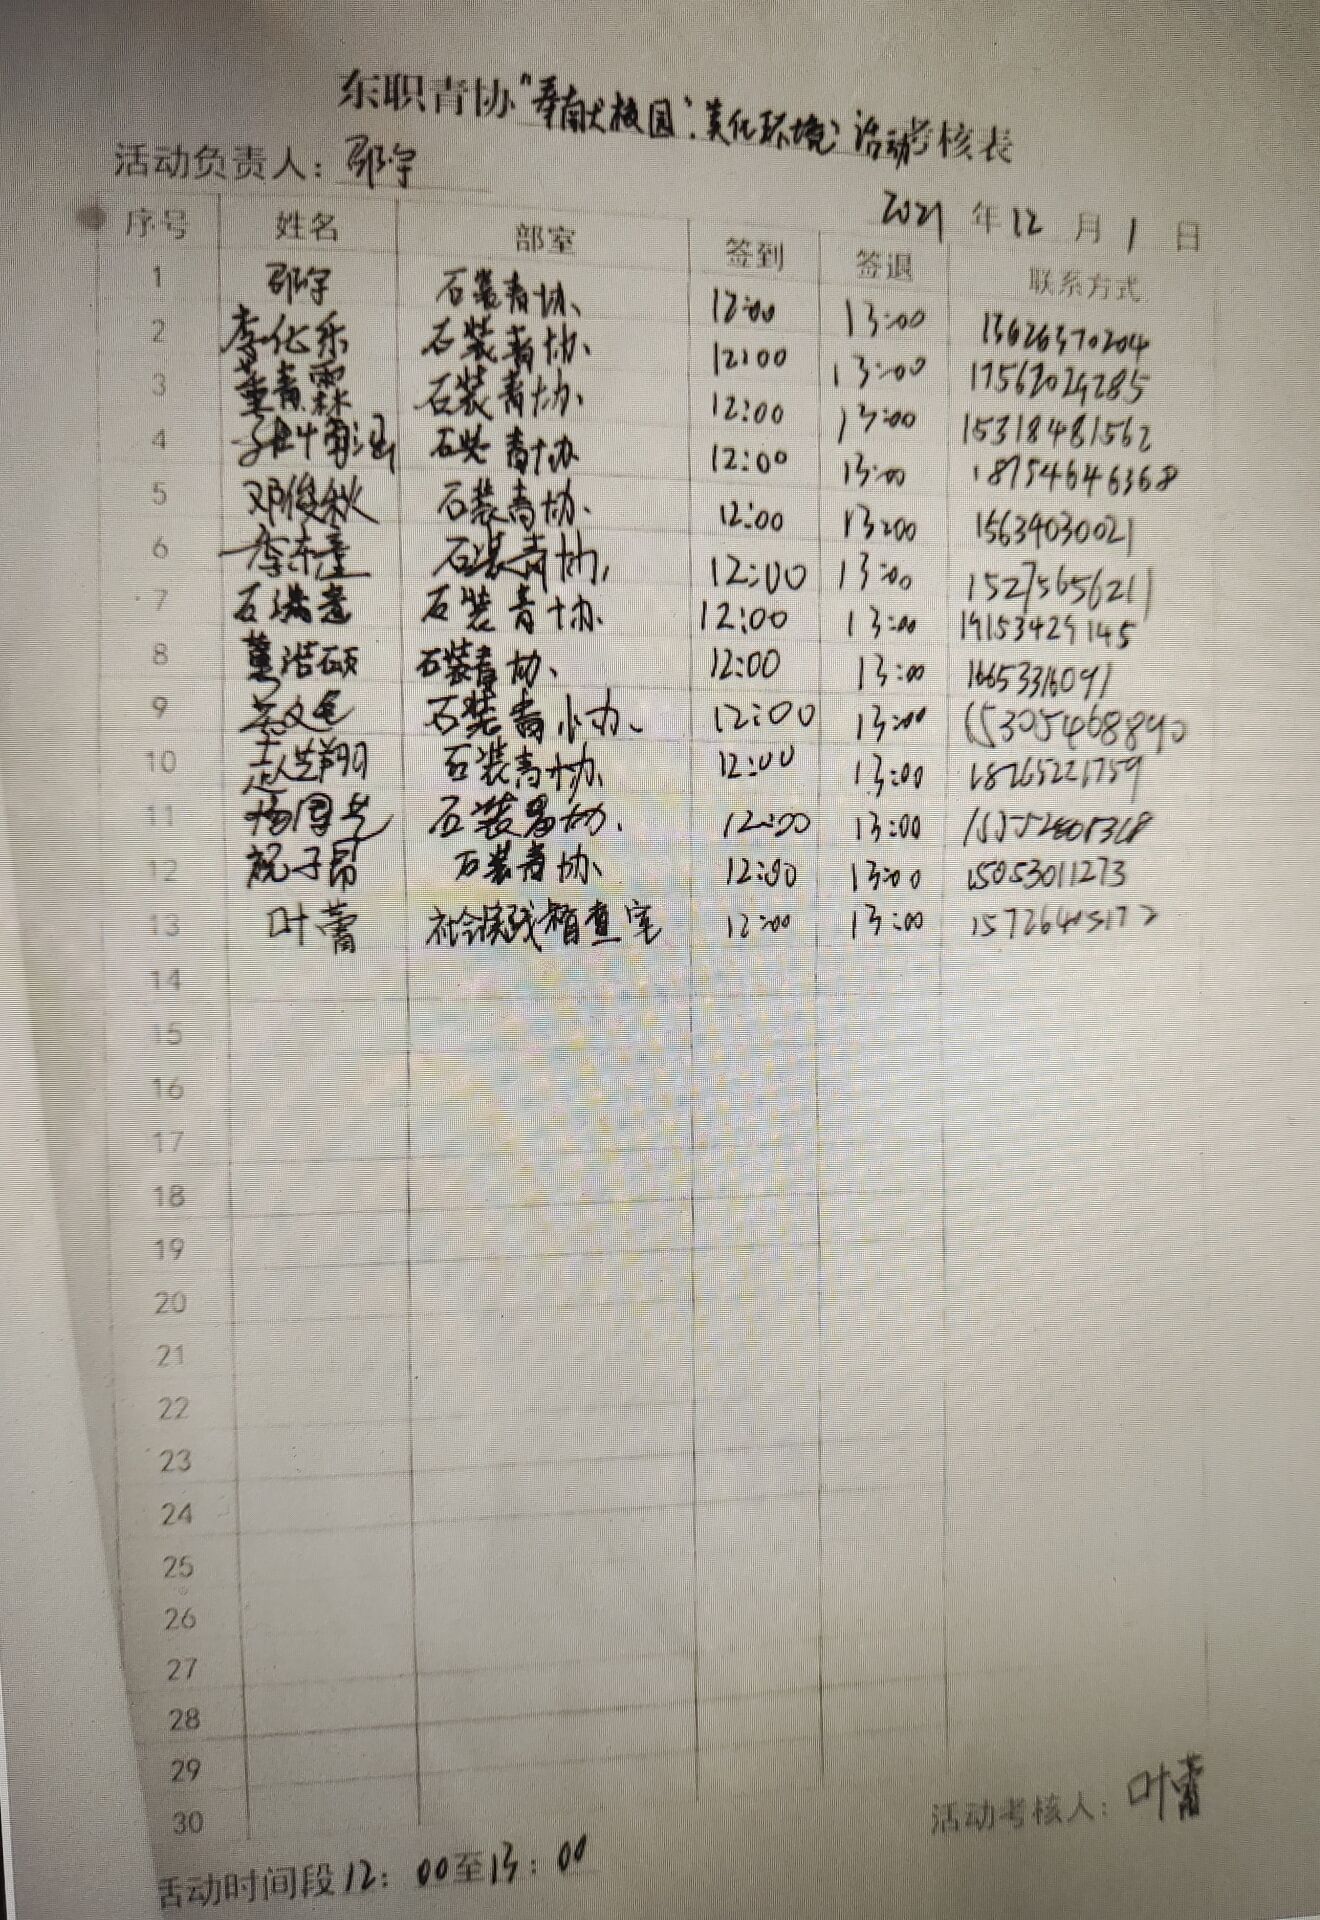 东职青协“奉献校园,美化环境”活动考核表
活动负责人：邵宇
2021年12月1日
序号 姓名 部室 签到 签退 联系方式
1 邵宇 石装青协 12:00 13:00 13626370204
2 李化乐 石装青协 12:00 13:00 17562029285
3 董青霖 石装青协 12:00 13:00 15318481562
4 石装青协 12:00 13:00 18754646368
5 邓俊秋 石装青协 12:00 13:00 15634030021
6 李东潼 石装青协 12:00 13:00 15275656211
7 石装青协 12:00 13:00 19153429145
8 董浩硕 石装青协 12:00 13:00 1665316091
9 石装青协 12:00 13:00 15305468890
10 石装青协 12:00 13:00 18265221759
11 石装青协 12:00 13:00
12 祝子昂 石装青协 12:00 13:00 15053011273
13 叶蕾 社会实践稽查室 12:00 13:00
14
15
16
17
18
19
20
21
22
23
24
25
26
27
28
29
30
活动考核人：叶蕾
活动时间段12：00至13：00